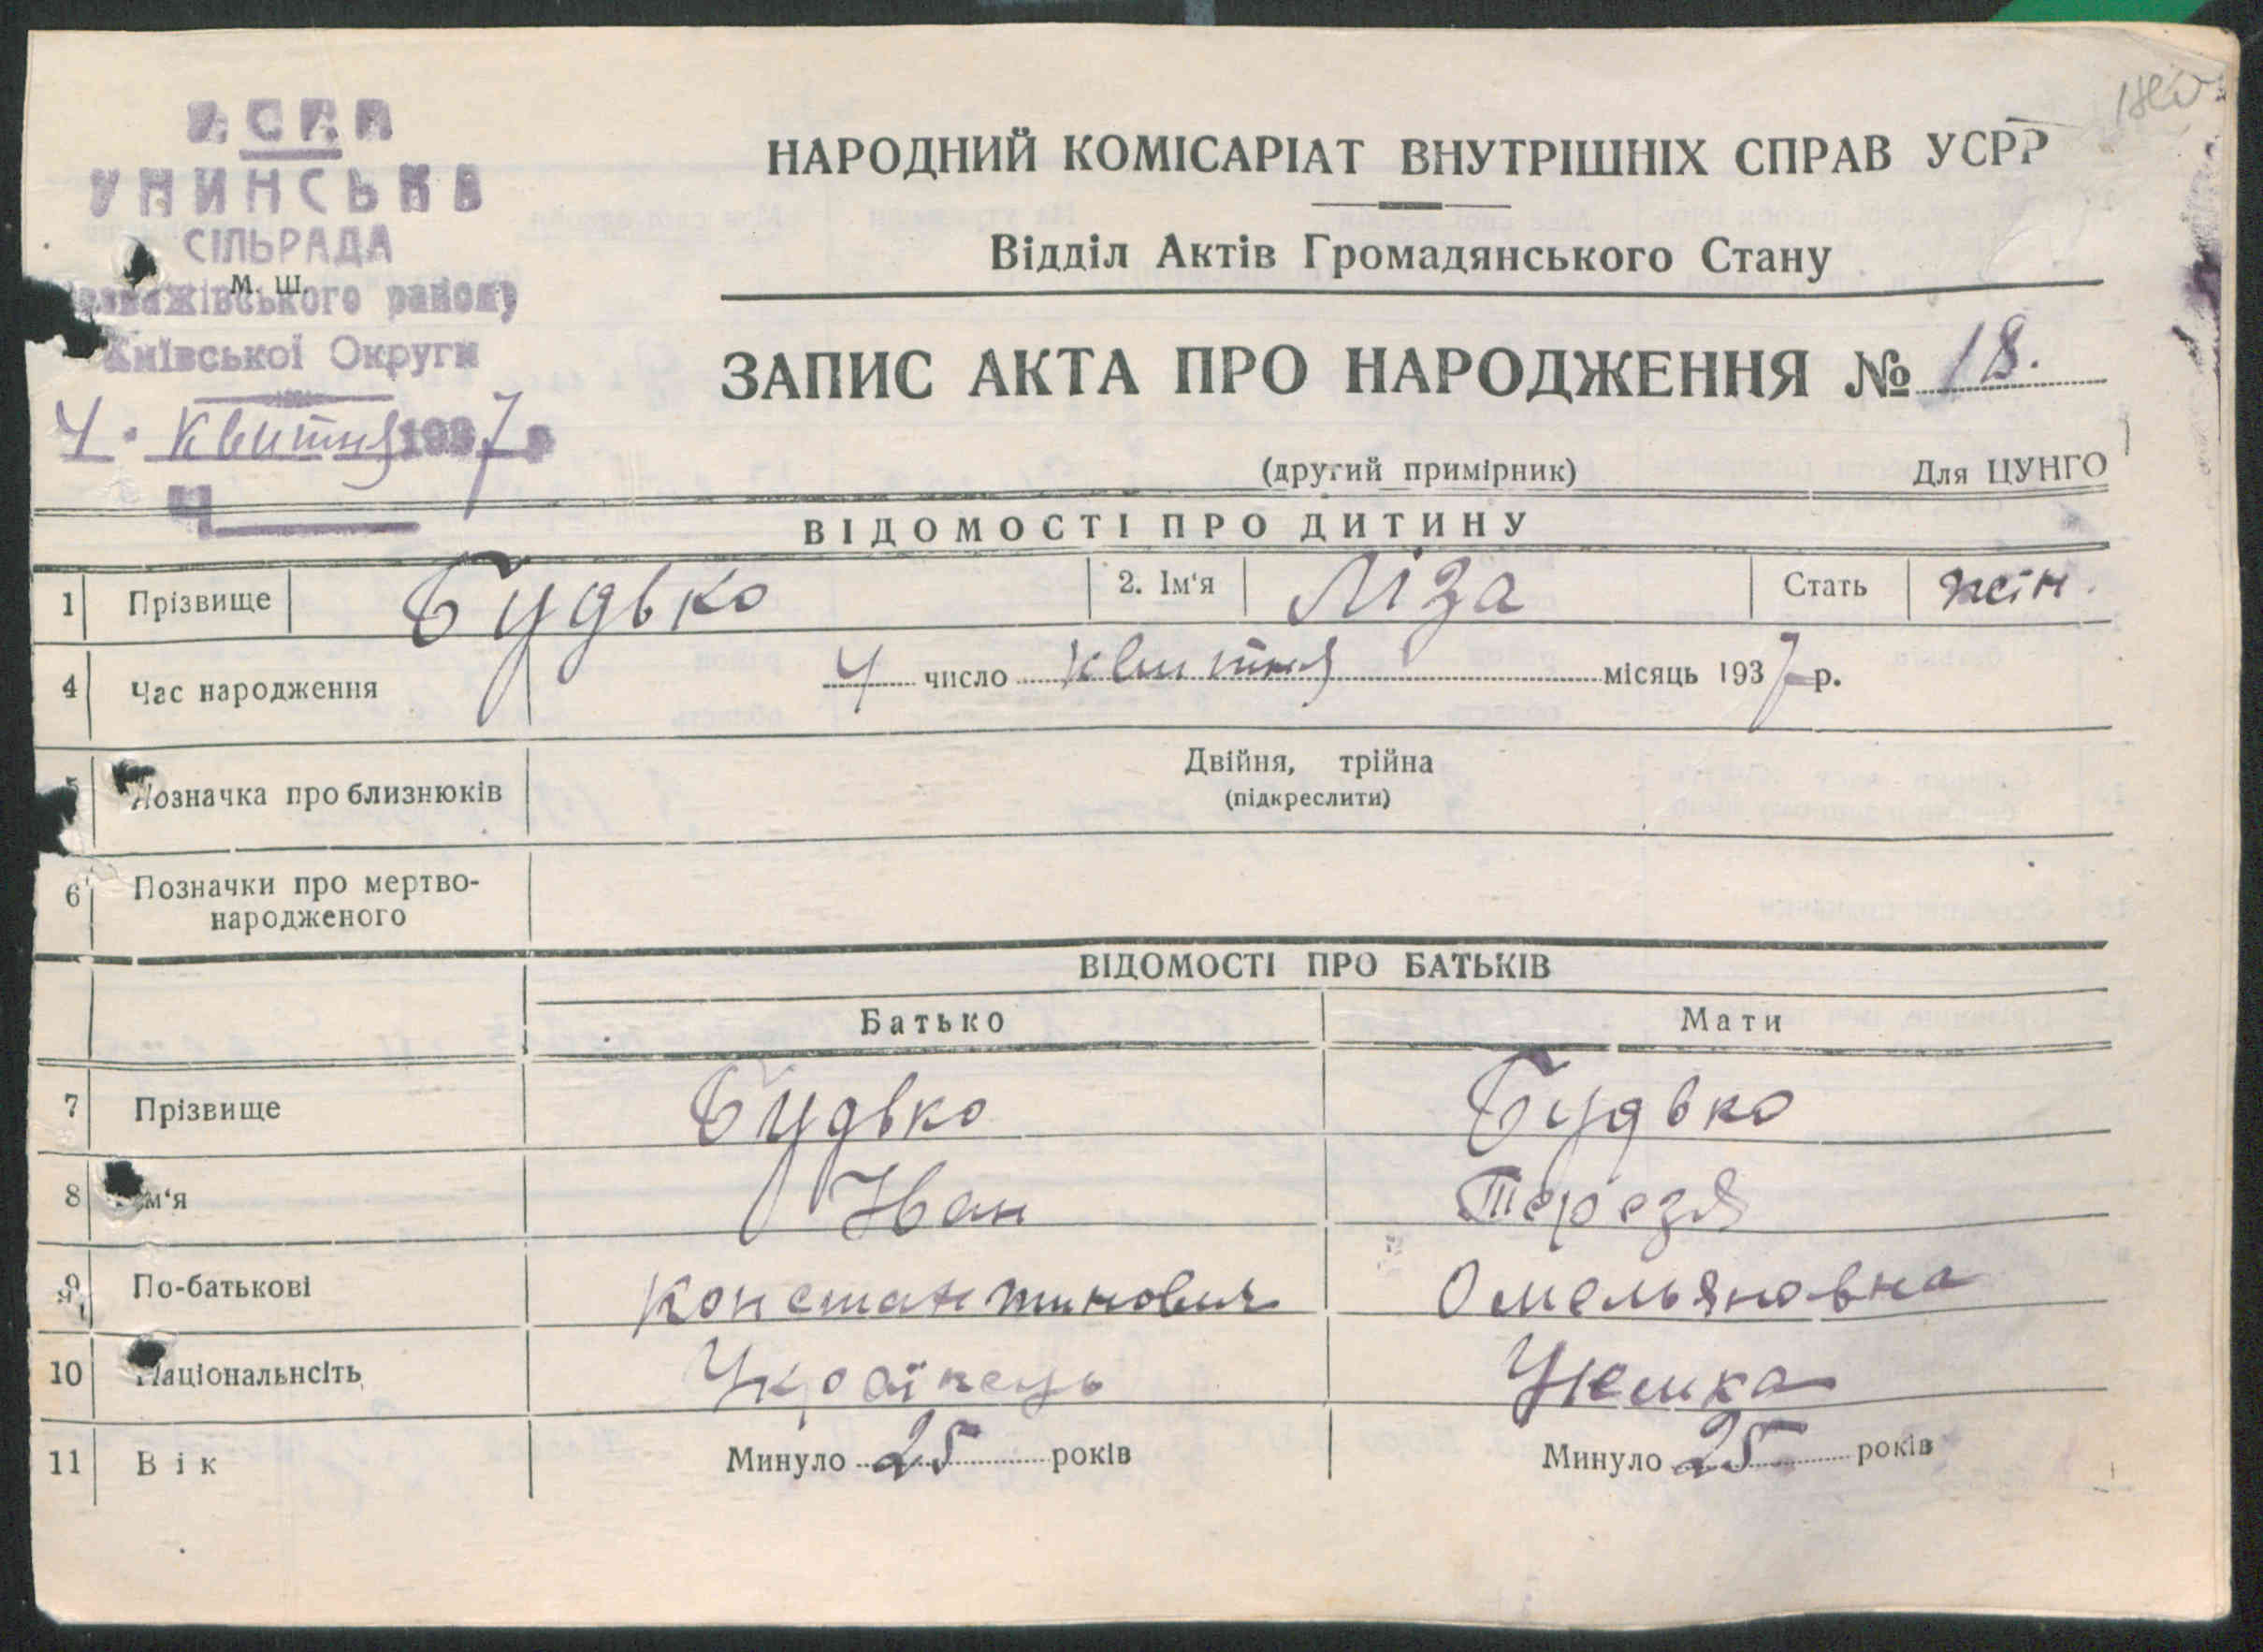 УСРР
УНИНСЬКА
СІЛЬРАДА
М. Ш.
району
Київської Округи
4. квітня 1937 р
Ч
НАРОДНИЙ КОМІСАРІАТ ВНУТРІШНІХ СПРАВ УСРР
Відділ Актів Громадянського Стану
ЗАПИС АКТА ПРО НАРОДЖЕННЯ № 18.
(другий примірник) Для ЦУНГО
ВІДОМОСТІ ПРО ДИТИНУ
1 Прізвище Будько 2. Ім'я Ліза Стать жін.
4 Час народження 4 число квитня місяць 1937 р.
5 Позначка про близнюків Двійня, трійна
(підкреслити)
6 Позначки про мертво-
народженого
ВІДОМОСТІ ПРО БАТЬКІВ
Батько Мати
7 Прізвище Будько Будько
8 Ім'я Іван Терезя
9 По-батькові Константинович Омельяновна
10 Національнсіть Українець
11 Вік Минуло 25 років Минуло 25 років